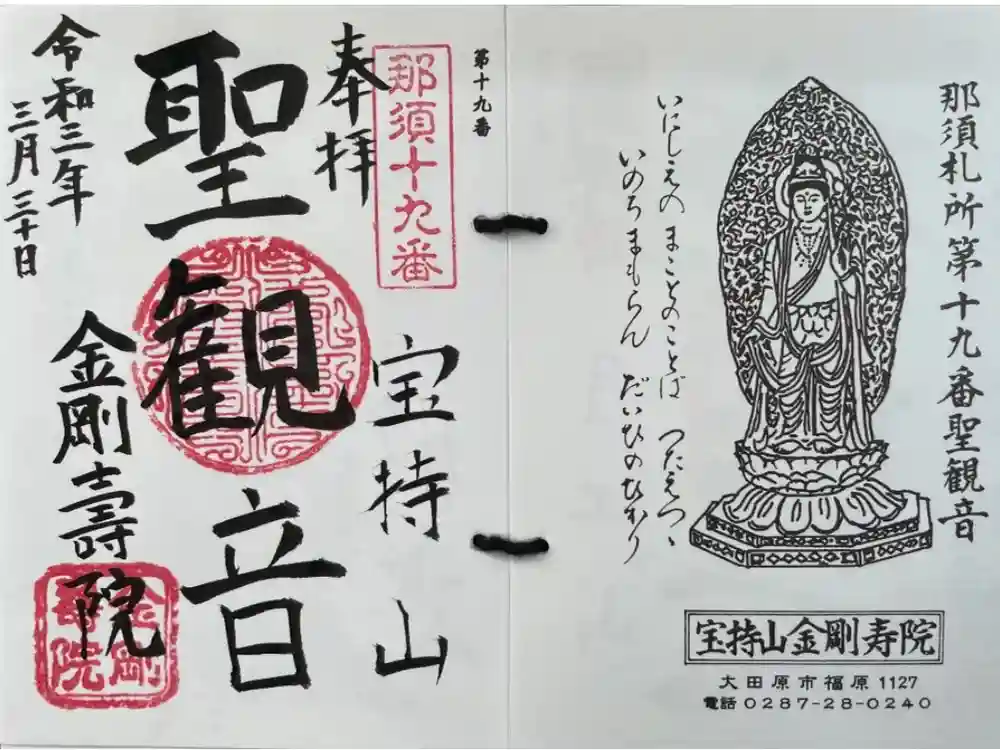 那須札所第十九番聖観音
いにしえの まことのことば つたえつゝ
いのちまもらん だいひのひかり
宝持山金剛寿院
大田原市福原1127
電話0287-28-0240
第十九番
那須十九番
奉拝
宝持山
聖観音
金剛壽院
金剛
壽院
令和三年
三月三十日